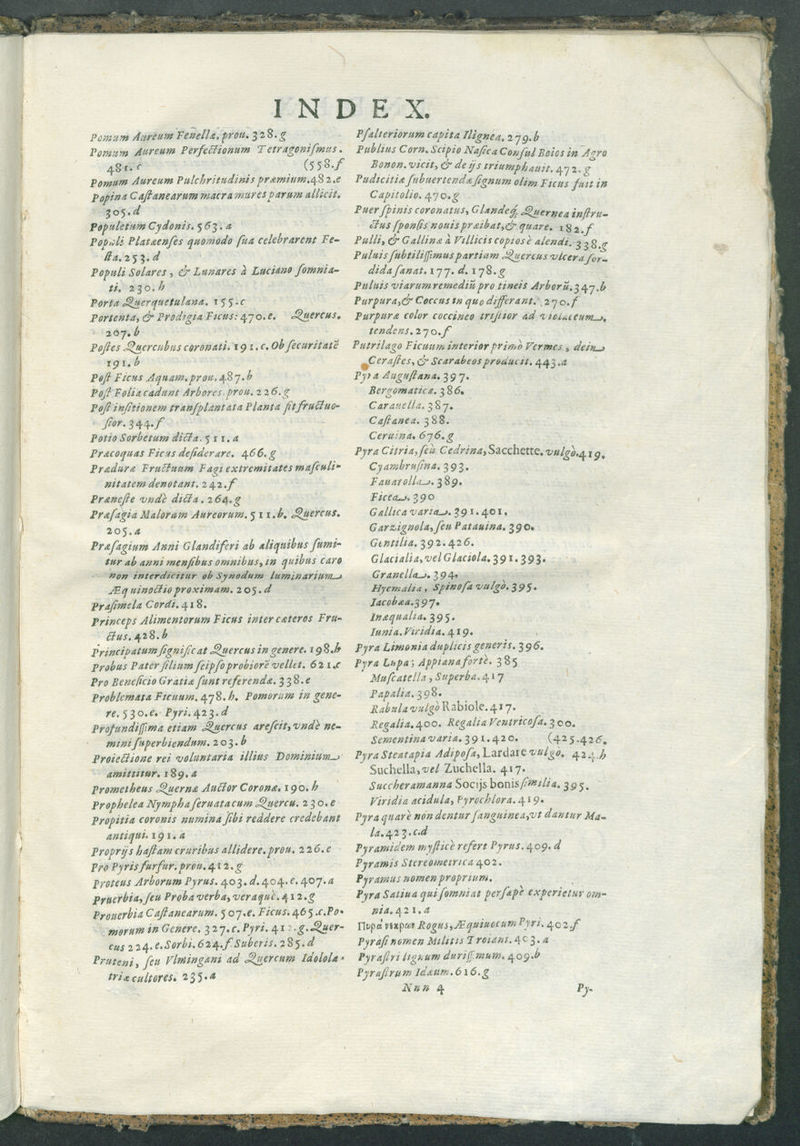 INDEX.
Pomum Aureum Fenellæ. prou. 328.g
Pomum Aureum Perfectionum Tetragonismus.
481.c (558.f
Pomum Aureum Pulchritudinis præmium.482.e
Popina Castanearum macra mures parum allicit.
305.d
Populetum Cydonis. 563.a
Populi Platæenses quomodo sua celebrarent Fe-
sta. 253. d
Populi Solares, & Lunares à Luciano somnia-
ti. 230. h
Porta Querquetulana. 155.c
Portenta, & Prodigia Ficus: 470.e. Quercus.
207.b
Postes Quercubus coronati. 191.c. Ob securitatē
191.b
Post Ficus Aquam. prou. 487.b
Post Folia cadunt Arbores. prou. 226.g
Post insitionem transplantata Planta fit fructuo-
sior. 344.f
Potio Sorbetum dicta. 511.a
Præcoquas Ficus desiderare. 466.g
Prædura Fructuum Fagi extremitates masculi-
nitatem denotant. 242.f
Præneste vndè dicta. 264.g
Præsagia Malorum Aureorum. 511.b. Quercus.
205.a
Præsagium Anni Glandiferi ab aliquibus sumi-
tur ab anni mensibus omnibus, in quibus caro
non interdicitur ob Synodum luminarium
Æquinoctio proximam. 205.d
Prasimela Cordi. 418.
Princeps Alimentorum Ficus inter cæteros Fru-
ctus. 428.b
Principatum significat Quercus in genere. 198.b
Probus Pater filium seipso probiorē vellet. 621.c
Pro Beneficio Gratiæ sunt referendæ. 338.e
Problemata Ficuum. 478.h. Pomorum in gene-
re. 530.e. Pyri. 423.d
Profundissima etiam Quercus arescit, vndè ne-
mini superbiendum. 203.b
Proiectione rei voluntaria illius Dominium
amittitur. 189.a
Prometheus Quernæ Auctor Coronæ. 190.h
Prophelea Nympha seruata cum Quercu. 230.e
Propitia coronis numina sibi reddere credebant
antiqui. 191.a
Proprijs hastam cruribus allidere. prou. 226.e
Pro Pyris furfur. prou. 412.g
Proteus Arborum Pyrus. 403.d. 404.e. 407.a
Pruerbia, seu Proba verba, veraquè. 412.g
Prouerbia Castanearum. 507.e. Ficus. 465.c. Po-
morum in Genere. 327.c. Pyri. 412.g. Quer-
cus 224.e. Sorbi. 624.f Suberis. 285.d
Pruteni, seu Vlmingani ad Quercum Idolola-
triæ cultores. 235.a
Psalteriorum capita Ilignea. 279.b
Publius Corn. Scipio Nasica Consul Boios in Agro
Bonon. vicit, & de ijs triumphauit. 472.g
Pudicitiæ subuertendæ signum olim Ficus fuit in
Capitolio. 470.g
Puer spinis coronatus, Glandeq́; Quernea instru-
ctus sponsis nouis præibat, & quare. 182.f
Pulli, & Gallinæ à Villicis copiosè alendi. 338.g
Puluis subtilissimus partium Quercus vlcera sor-
dida sanat. 177. d. 178.g
Puluis viarum remediū pro tineis Arborū. 347.b
Purpura, & Coccus in quo differant. 270.f
Purpuræ color coccineo tristior ad violaceum,
tendens. 270.f
Putrilago Ficuum interior primò Vermes, dein
Cerastes, & Scarabeos producit. 443.a
Pyra Augustana. 397.
Bergomatica. 386.
Carauella. 387.
Castanea. 388.
Ceruina. 676.g
Pyra Citria, seù Cedrina, Sacchette. vulgò. 419.
Cyambrusina. 393.
Fauarolla. 389.
Ficea. 390
Gallica varia. 391. 401.
Garzignola, seu Patauina. 390.
Gentilia. 392. 426.
Glacialia, vel Glaciola. 391. 393.
Granella. 394.
Hyemalia, Spinosa vulgò. 395.
Iacobæa. 397.
Inæqualia. 395.
Iunia. Viridia. 419.
Pyra Limonia duplicis generis. 396.
Pyra Lupa; Appiana fortè. 385
Muscatella, Superba. 417
Papalia. 398.
Rabula vulgò Rabiole. 417.
Regalia. 400. Regalia Ventricosa. 300.
Sementina varia. 391. 420. (425. 426.
Pyra Steatapia Adiposa, Lardate vulgò. 424.h
Suchella, vel Zuchella. 417.
Succheramanna Socijs bonis similia. 395.
Viridia acidula, Pyrochlora. 419.
Pyra quarè non dentur sanguinea, vt dantur Ma-
la. 423.c.d
Pyramidem mysticè refert Pyrus. 409. d
Pyramis Stereometrica 402.
Pyramus nomen proprium.
Pyra Satiua qui somniat persæpè experietur om-
nia. 421.a
Πυρὰ νεκρῶν Rogus, Æquiuocum Pyri. 402.f
Pyrasi nomen Militis Troiani. 403.a
Pyrastri lignum durissimum. 409.b
Pyrastrum Idæum. 616.g
Nnn 4 Py-